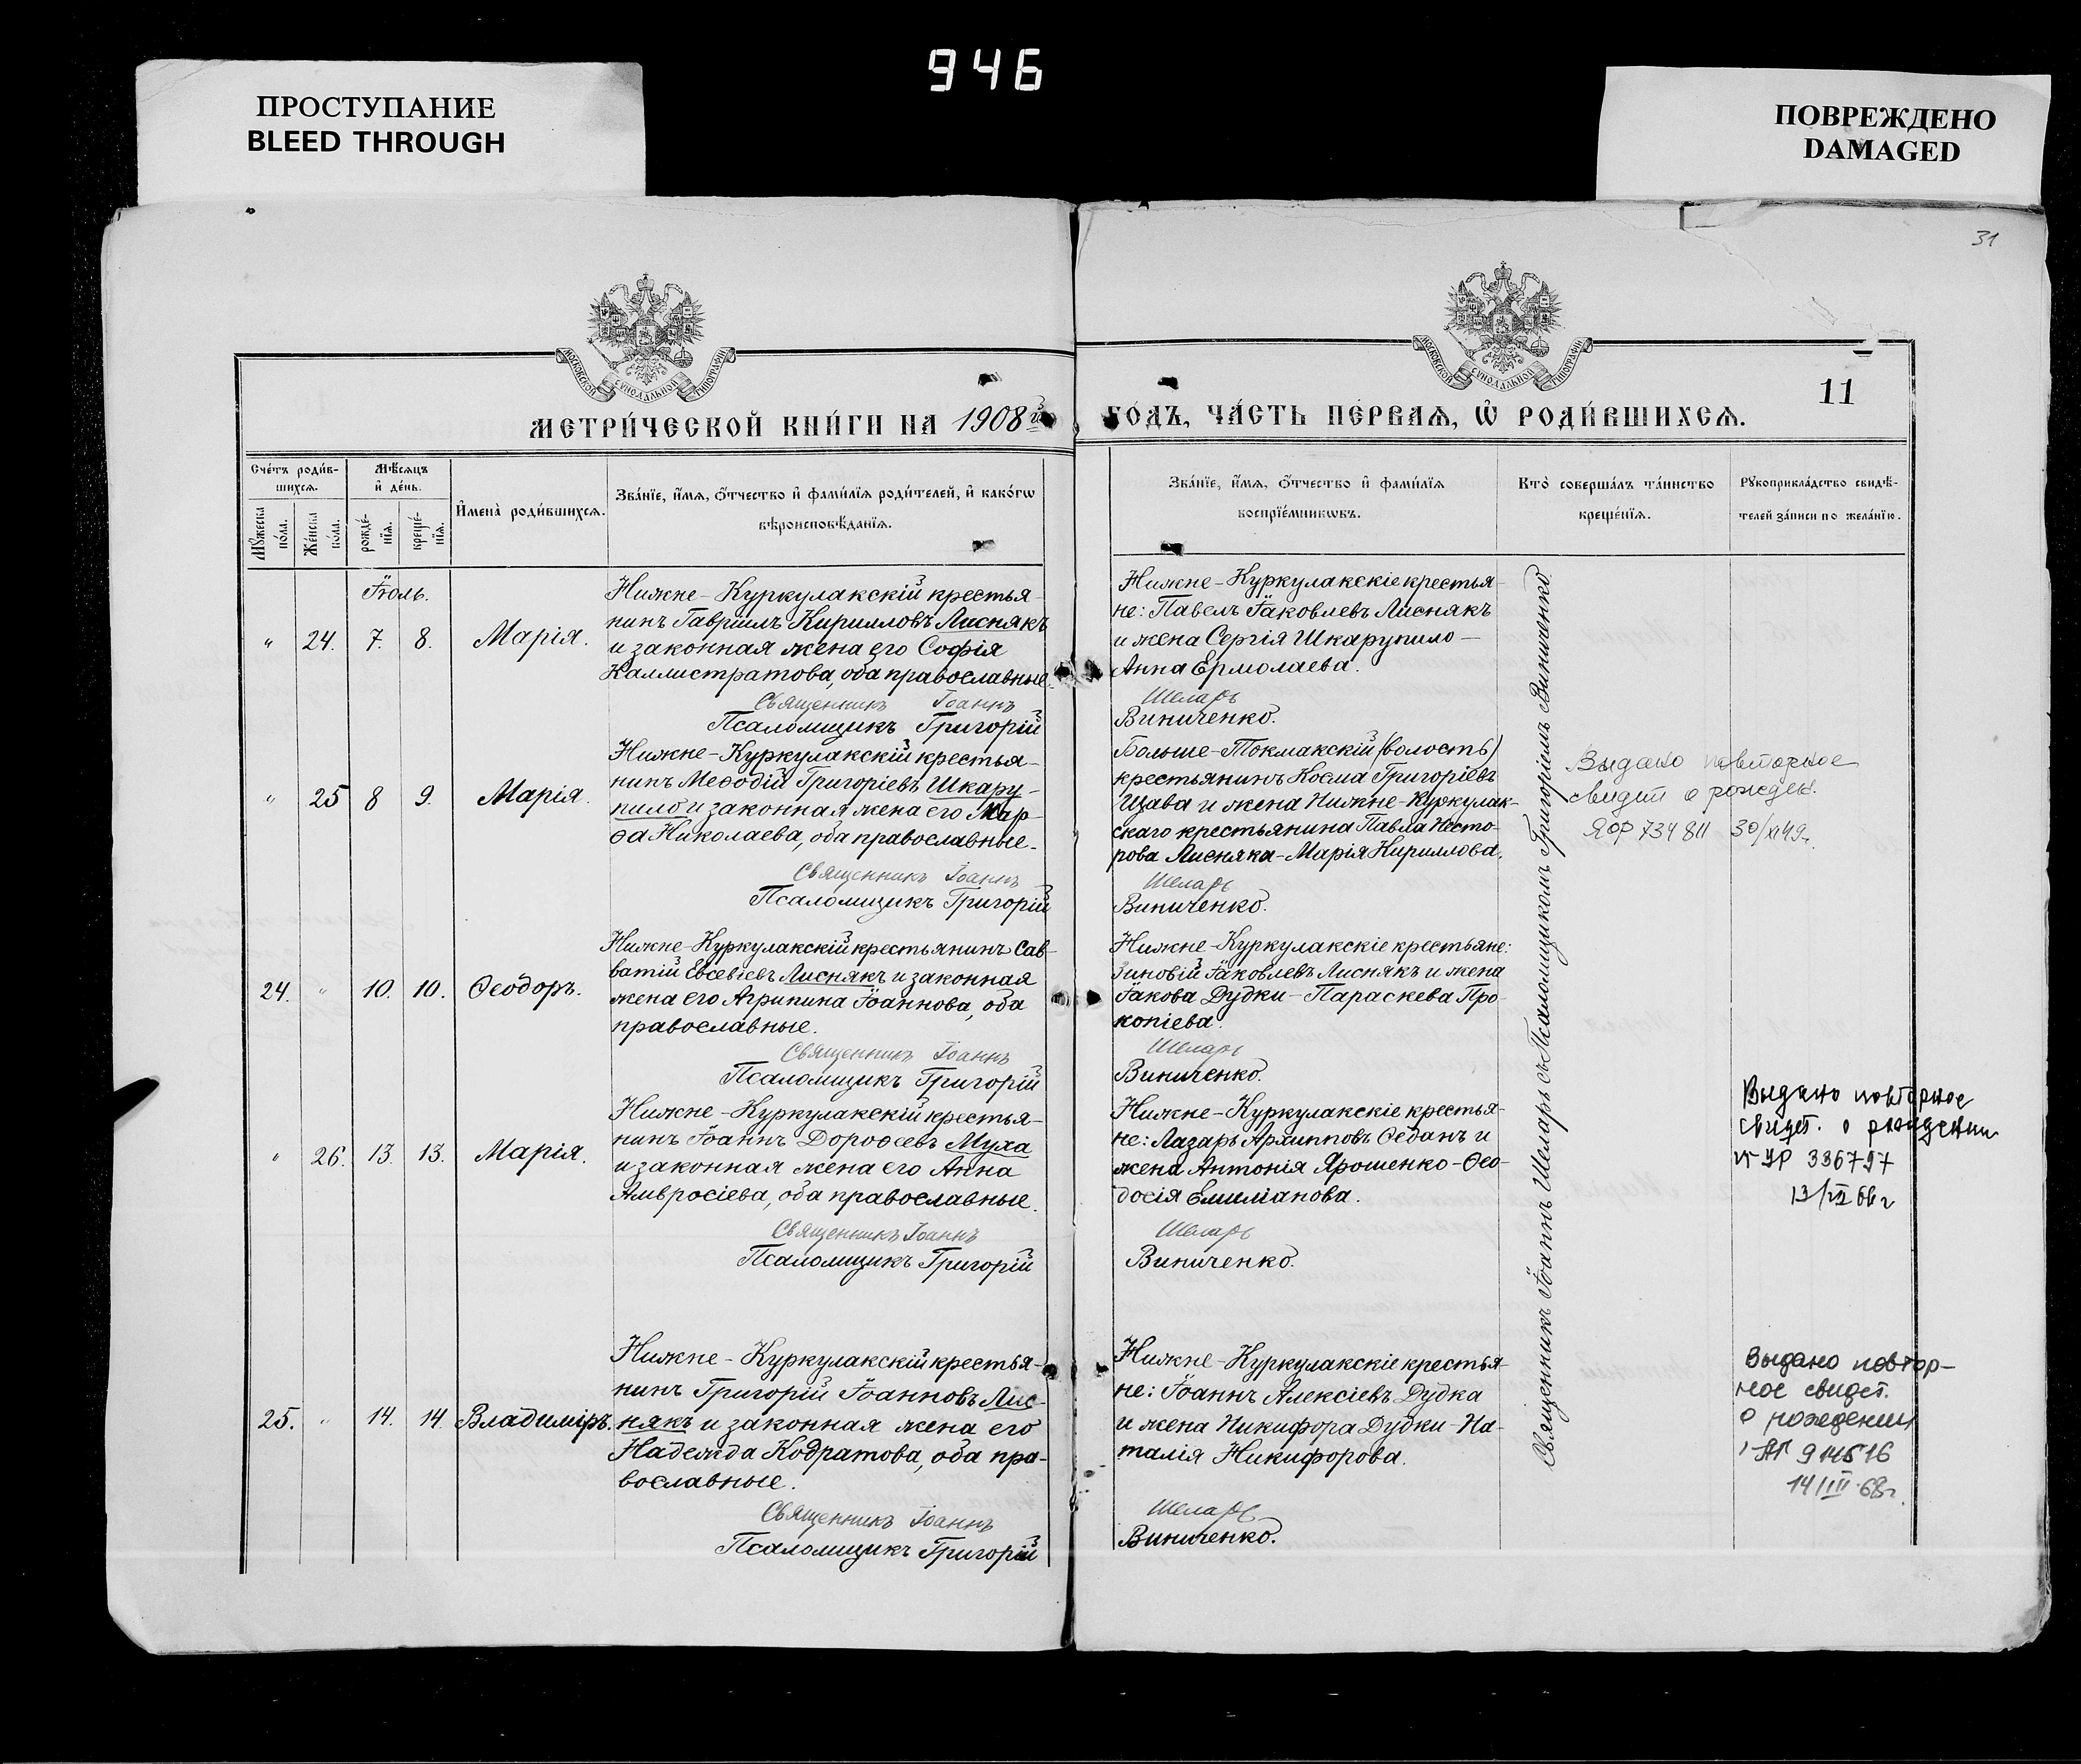 946
ПРОСТУПАНИЕ
BLEED THROUGH
ПОВРЕЖДЕНО
DAMAGED
31
11
МОСКОВСКОЙ СѴНОДАЛЬНОЙ ТИПОГРАФІИ
МОСКОВСКОЙ СѴНОДАЛЬНОЙ ТИПОГРАФІИ
МЕТРИ́ЧЕСКОЙ КНИ́ГИ НА 1908й
ГО́ДЪ, ЧА́СТЬ ПЕ́РВАѦ, Ѡ҆ РОДИ́ВШИХСѦ.
Сче́тъ роди́в-
шихсѧ.
Мѣ́сѧцъ
и҆ де́нь.
Мꙋ́жеска
по́ла.
Же́нска
по́ла.
рожде́-
нїѧ.
креще́-
нїѧ.
И҆мена̀ роди́вшихсѧ.
Зва́нїе, и҆́мѧ, ѻ҆́тчество и҆ фами́лїѧ роди́телей, и҆ како́гѡ
вѣроисповѣ́данїѧ.
Зва́нїе, и҆́мѧ, ѻ҆́тчество и҆ фами́лїѧ
воспрїе́мникѡвъ.
Кто̀ соверша́лъ та́инство
креще́нїѧ.
Рꙋкоприкла́дство свидѣ́-
телей за́писи по жела́нїю.
Іюль.
" 24. 7. 8. Марія.
Нижне-Куркулакскій крестья-
нинъ Гавріилъ Кирилловъ Лиснякъ
и законная жена его Софія
Каллистратова, оба православные.
Священникъ Іоаннъ
Псаломщикъ Григорій
Нижне-Куркулакскіе крестья-
не: Павелъ Іаковлевъ Лиснякъ
и жена Сергія Шкарупило —
Анна Ермолаева.
Шеларь
Виниченко.
" 25 8 9. Марія.
Нижне-Куркулакскій крестья-
нинъ Меѳодій Григоріевъ Шкару-
пило и законная жена его Мар-
ѳа Николаева, оба православные.
Священникъ Іоаннъ
Псаломщикъ Григорій
Больше-Токмакскій (волость)
крестьянинъ Косма Григоріевъ
Щава и жена Нижне-Куркулак-
скаго крестьянина Павла Несто-
рова Лисняка-Марія Кириллова.
Шеларь
Виниченко.
Выдано повторное
свидет о рожден.
ЯФР 734811 30/XI49г.
24. " 10. 10. Ѳеодоръ.
Нижне-Куркулакскій крестьянинъ Сав-
ватій Евсевіевъ Лиснякъ и законная
жена его Агрипина Іоаннова, оба
православные.
Священникъ Іоаннъ
Псаломщикъ Григорій
Нижне-Куркулакскіе крестьяне:
Зиновій Іаковлевъ Лиснякъ и жена
Іакова Дудки-Параскева Про-
копіева.
Шеларь
Виниченко.
" 26. 13. 13. Марія.
Нижне-Куркулакскій крестья-
нинъ Іоаннъ Дороѳеевъ Муха
и законная жена его Анна
Амвросіева, оба православные.
Священникъ Іоаннъ
Псаломщикъ Григорій
Нижне-Куркулакскіе крестья-
не: Лазарь Архипповъ Ѳеданъ и
жена Антонія Ярошенко-Ѳео-
досія Емиліанова.
Шеларь
Виниченко.
Выдано повторное
свидет. о рождении
УР 336797
25. " 14. 14. Владиміръ.
Нижне-Куркулакскій крестья-
нинъ Григорій Іоанновъ Лис-
някъ и законная жена его
Надежда Кодратова, оба пра-
вославные.
Священникъ Іоаннъ
Псаломщикъ Григорій
Нижне-Куркулакскіе крестья-
не: Іоаннъ Алексіевъ Дудка
и жена Никифора Дудки-На-
талія Никифорова.
Шеларь
Виниченко.
Выдано повтор-
ное свидет.
о рождении
14/III 68г.
Священникъ Іоаннъ Шеларь съ Псаломщикомъ Григоріемъ Виниченко